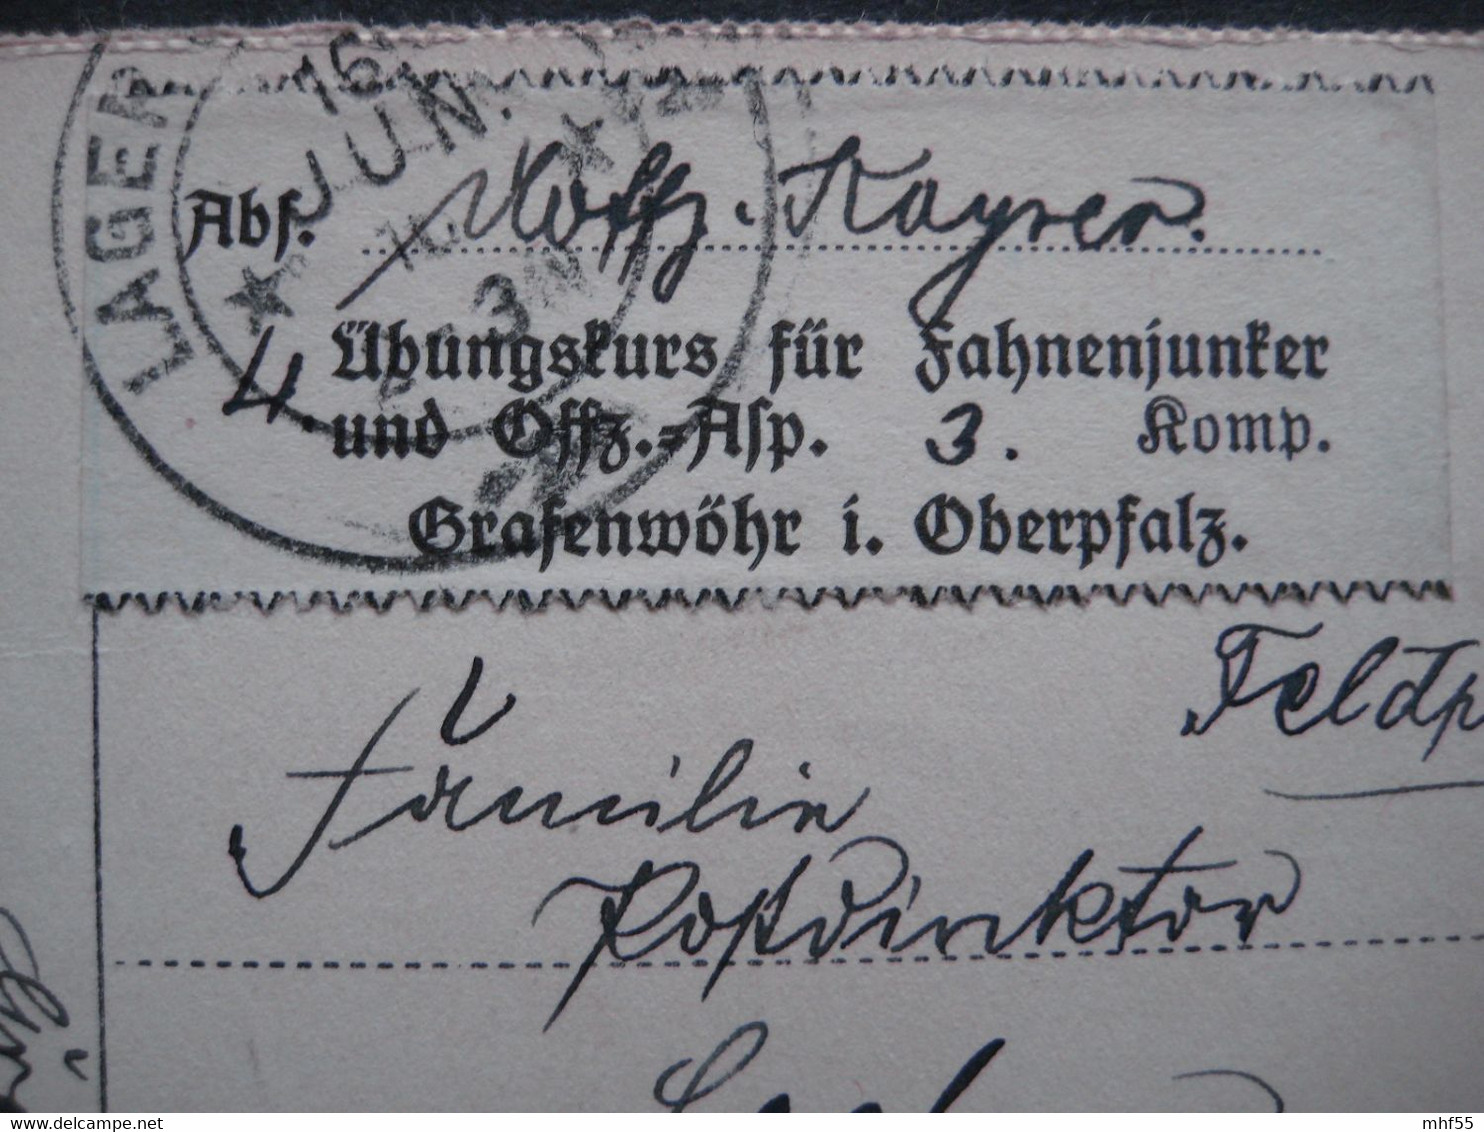 LAGER
16. JUN.
Abs. Uoffz. Kayser.
4. Übungskurs für Fahnenjunker
und Offz.-Asp. 3. Komp.
Grafenwöhr i. Oberpfalz.
Feldp
Familie
Postdirektor
mhf55